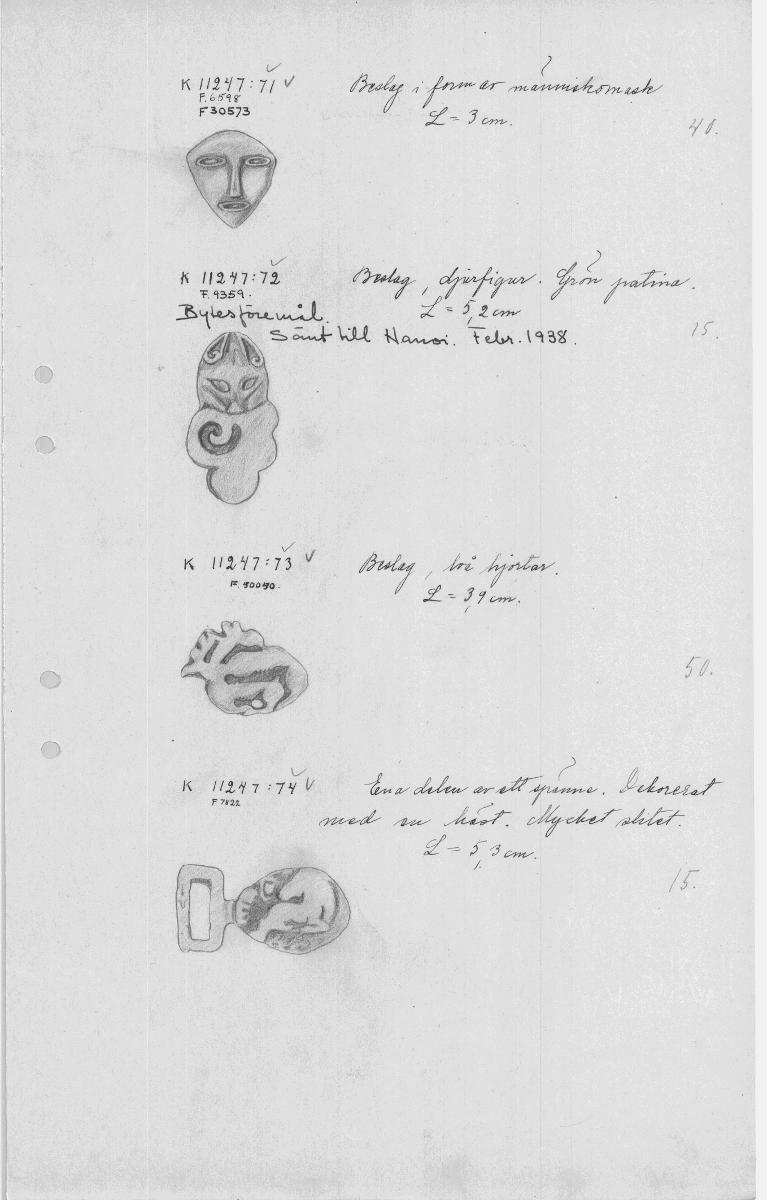 K 11247:71 Beslag i form av människomask
F.6598
F30573
L = 3 cm.
40.
K 11247:72 Beslag, djurfigur. Grön patina.
F.9359.
L = 5,2 cm
Bytesföremål.
Sänt till Hanoi. Febr. 1938.
15.
K 11247:73 Beslag, två hjortar.
F.50050.
L = 3,9 cm.
50.
K 11247:74 Ena delen av ett spänne. Dekorerat
F 7822
med en häst. Mycket slitet.
L = 5,3 cm.
15.